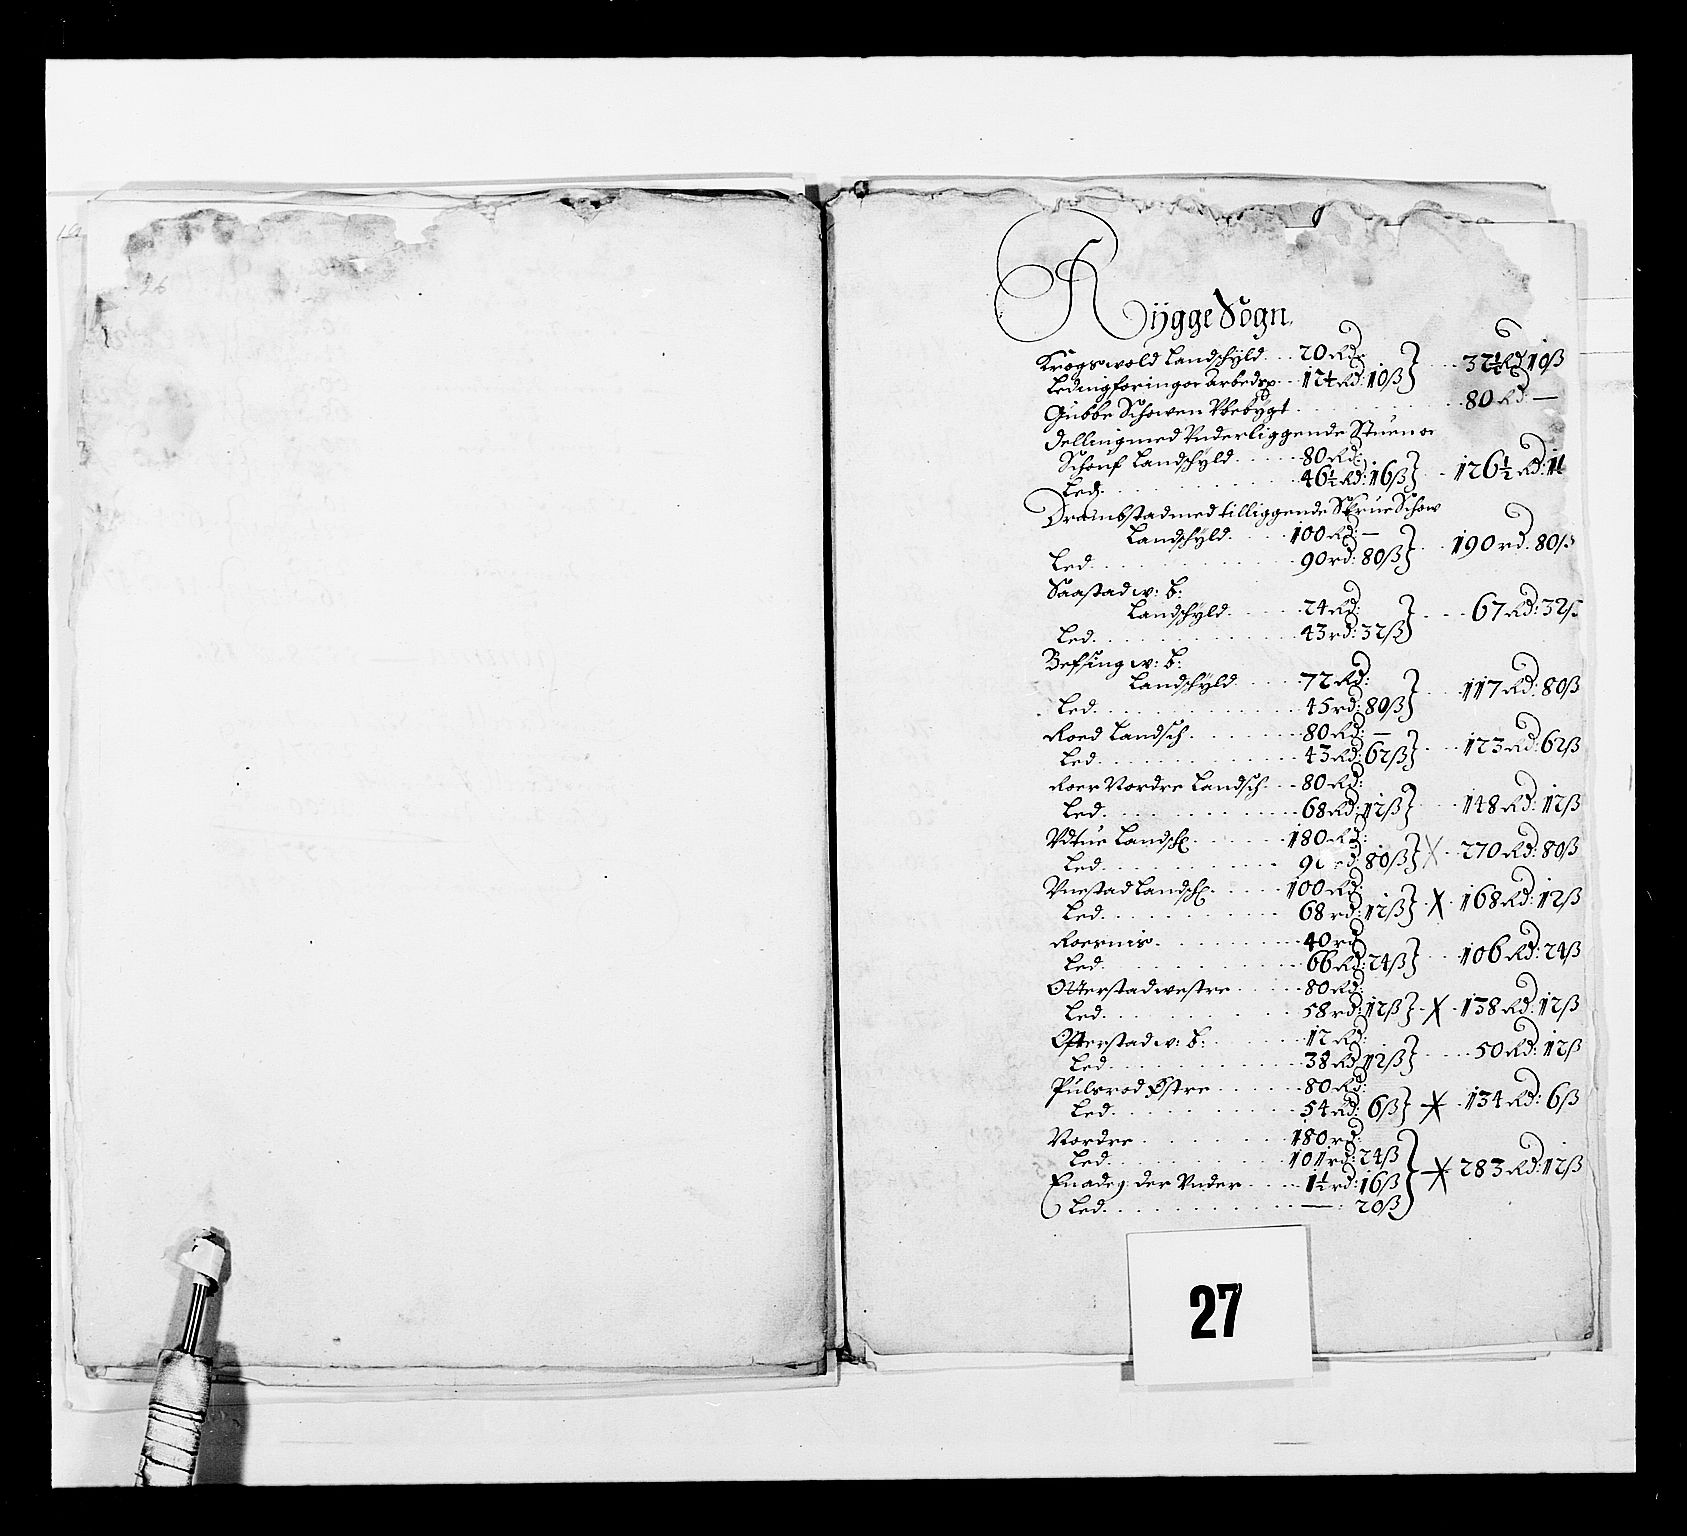 26
Rygge Sogn
Krogswold Landschyld . . . 20 Rd
Ledingforing oc Arbedsp. . . 12½ Rd: 10 ß } . . . 32½ Rd 10 ß
Gubbe Schowen Vbebÿgt . . . . . 80 Rd —
Delling med Vnderliggende Stuen oc
Schouf Landschÿld . . . . . 80 Rd:
Led. . . . . . . . . 46½ Rd: 16 ß } . . 126½ Rd: 1
Drambstad med tilliggende Skrue Schow
Landschÿld . . . . 100 Rd: —
Led. . . . . . . . . 90 rd: 80 ß } . . 190 rd. 80 ß
Saastad w: b:
Landschÿld . . . . . 24 Rd:
Led. . . . . . . . . 43 rd: 32 ß } . . . 67 Rd: 32 ß
Befsing w: b:
Landschÿld . . . . 72 Rd:
Led. . . . . . . . . 45 rd: 80 ß } . . . 117 Rd: 80 ß
Roed Landsch . . . . . . . 80 Rd: —
Led. . . . . . . . . 43 Rd: 62 ß } . . . 123 Rd: 62 ß
Roer Nordre Landsch . . . 80 Rd:
Led. . . . . . . . . 68 Rd: 12 ß } . . . 148 Rd: 12 ß
Vdtue Landsch . . . . . . 180 Rd:
Led. . . . . . . . . 90 rd: 80 ß } X . 270 Rd: 80 ß
Vnestad Landsch . . . . . 100 Rd:
Led. . . . . . . . . 68 rd: 12 ß } . X . 168 Rd: 12 ß
Roernis . . . . . . . . 40 rd
Led. . . . . . . . . 66 Rd: 24 ß } . . . 106 Rd: 24 ß
Otterstad westre . . . . . 80 Rd:
Led. . . . . . . . . 58 rd: 12 ß } . X . 138 Rd: 12 ß
Otterstad w: b: . . . . . 12 Rd:
Led. . . . . . . . . 38 Rd 12 ß } . . . . 50 Rd: 12 ß
Pulsrod Østre . . . . . . 80 Rd:
Led. . . . . . . . . 54 Rd: 6 ß } X . 134 Rd: 6 ß
Nordre . . . . . . . . 180 rd:
Led. . . . . . . . . 101 rd: 24 ß
Enadeg der Vnder . . . . . 1½ rd: 16 ß } X 283 Rd: 12 ß
Led. . . . . . . . . — : 20 ß
27